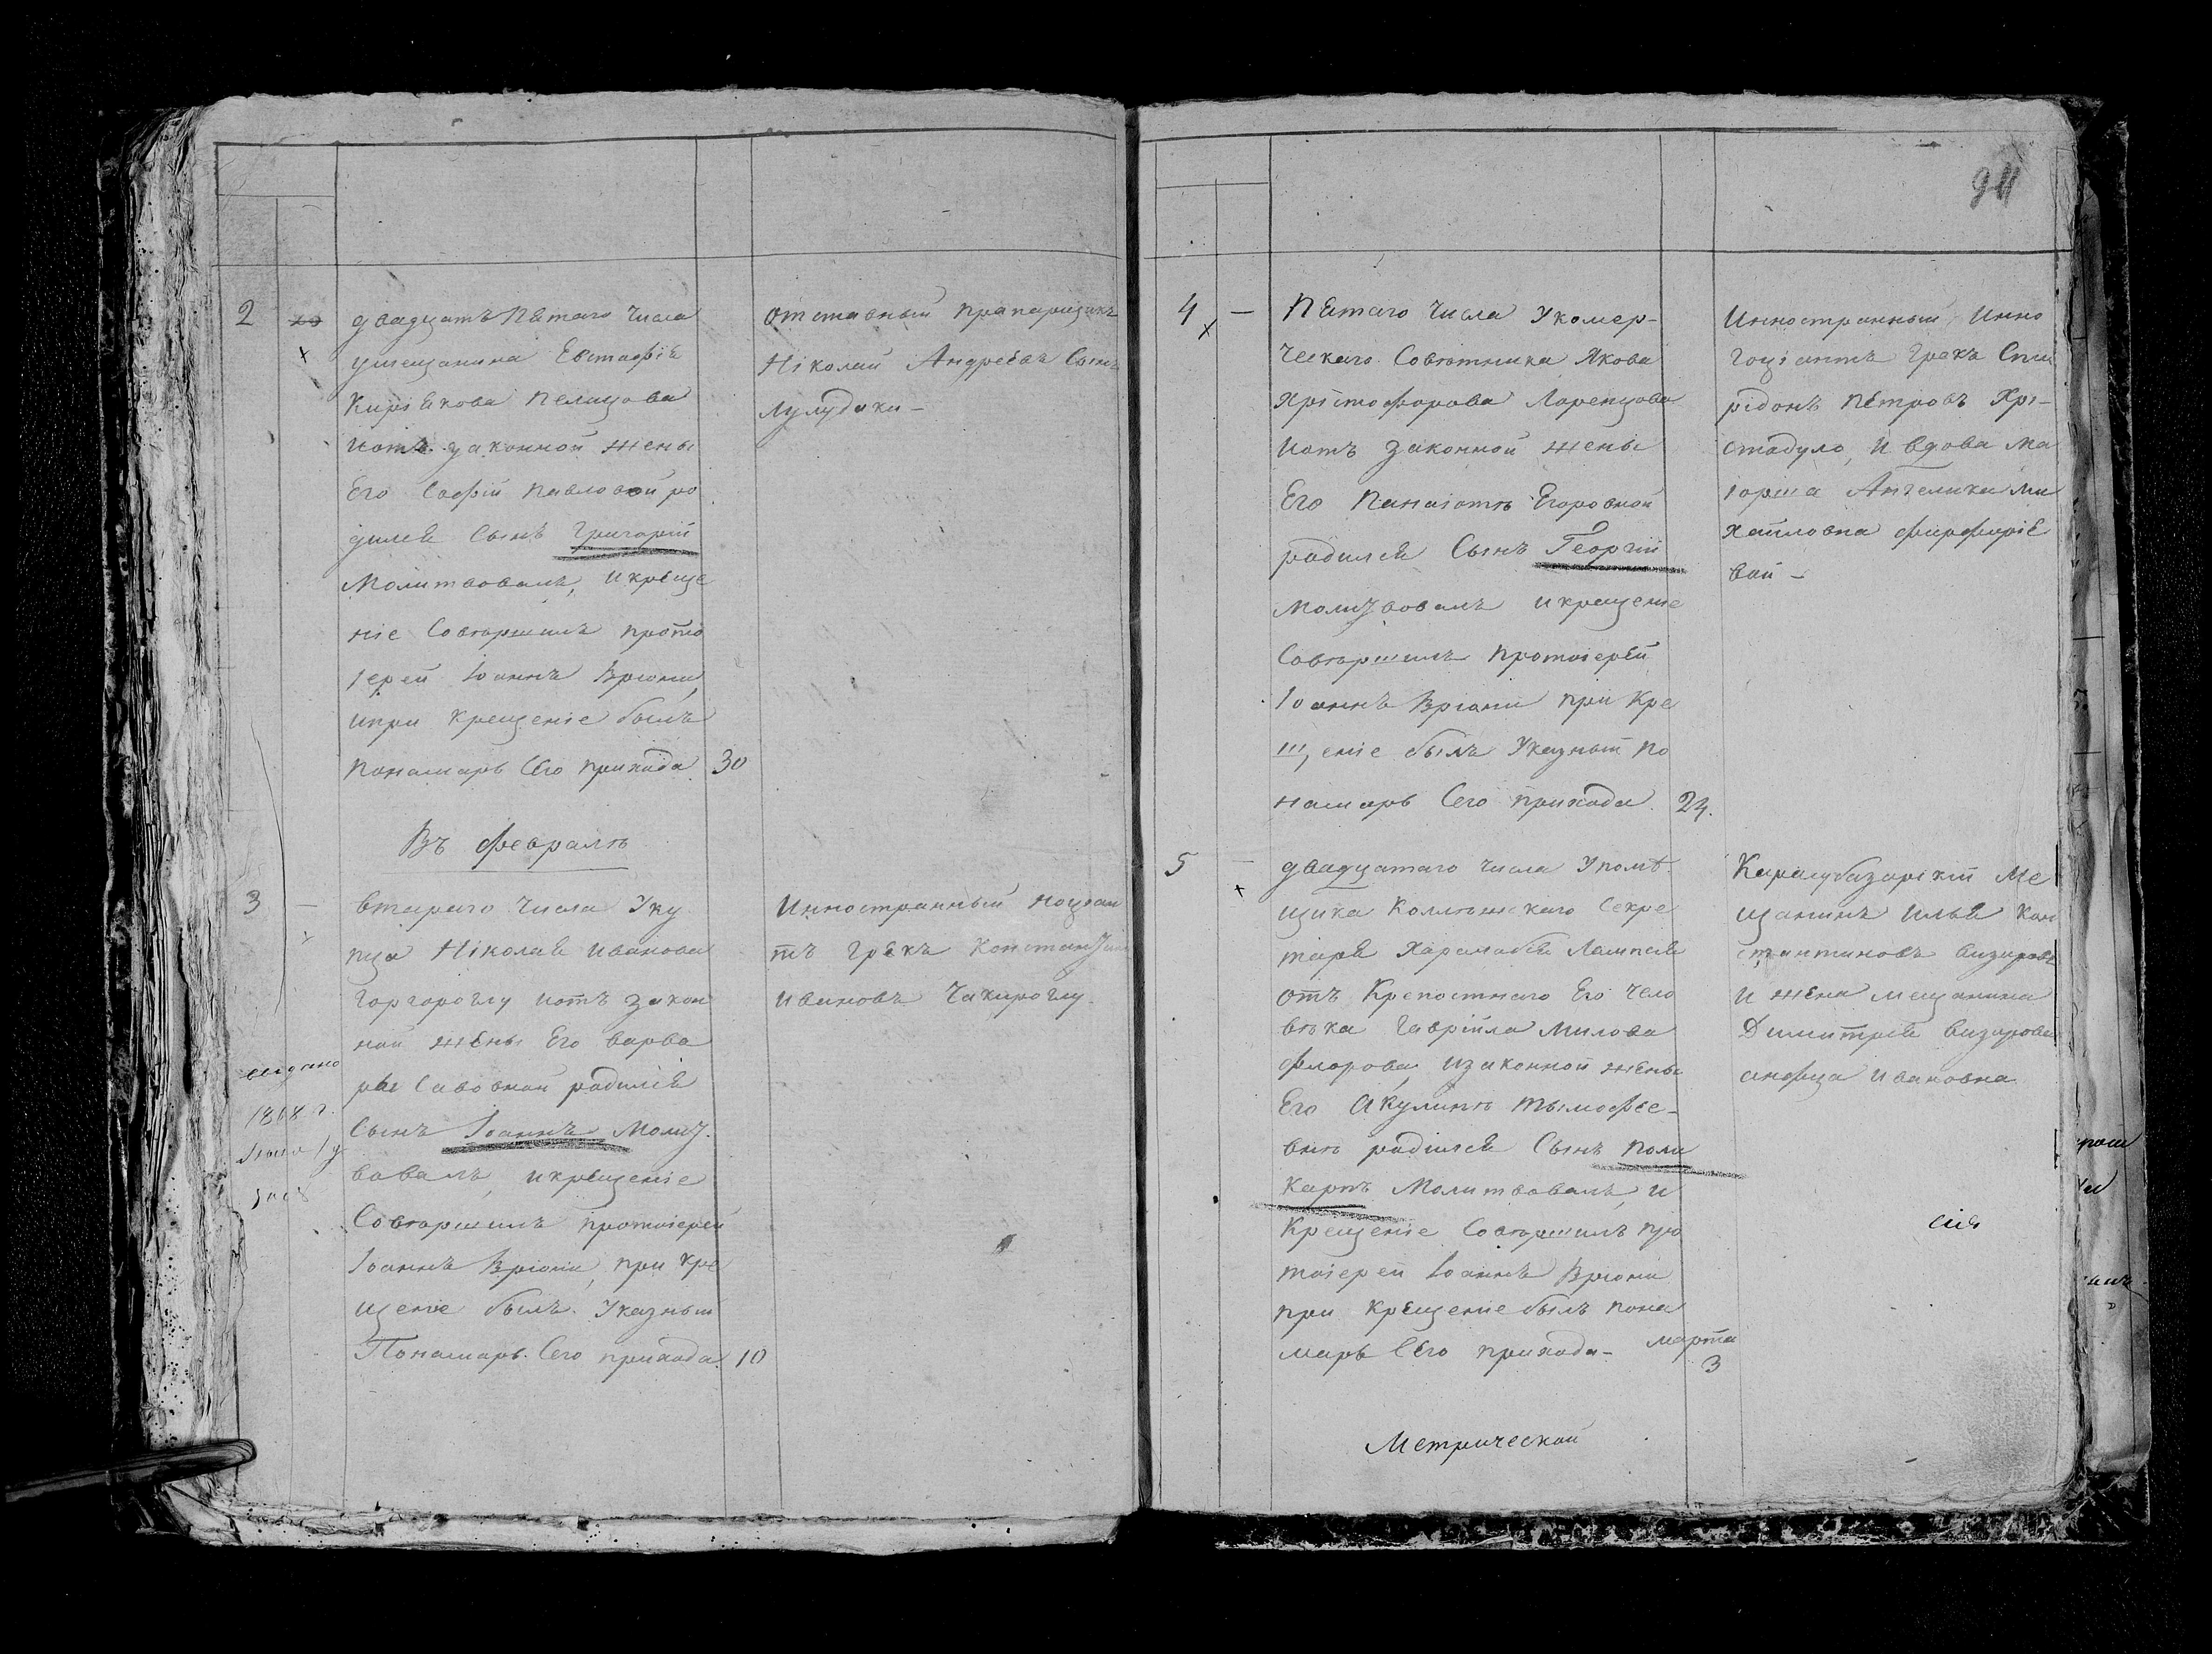 2
двадцать Пѣтаго числа
умещанина Евстафія
Киріякова Пелицова
иотъ законной жены
Его Софій Павловой ро
дился Сынъ Григорій
Молитвовалъ, икреще
ніе Совѣршилъ прото
іерей Іоаннъ Вріони,
ипри Крещеніе былъ
Понамарь Сего прихода 30
отставный прапарщикъ
Ніколаи Андреевъ Сынъ
Лулудаки-
Въ февралѣ
3
втараго Числа Уку
пца Ніколая Иванова
Горгороглу иотъ закон
ной жены Его Варва
ры Савовной радился
Сынъ Іоаннъ Мол
вовалъ, икрещеніе
Совѣршилъ протоіерей
Іоаннъ Вріони, при Кре
щеніе былъ Указный
Понамарь Сего прихода 10
Инностранный
тъ Грекъ
ивановъ Чакироглу.
выдано
1868 г.
94
4
Пѣтаго Числа Укомер-
ческаго Совѣтника Якова
Хрістофорова Ларенцова
иотъ законной жены
Его Панаіотъ Егоровной
радился Сынъ Георгій
вовалъ икрещеніе
Совѣршилъ Протоіерей
Іоаннъ Вріони при Кре
щеніе былъ Указный По
намарь Сего прихода. 24.
Инностранный Инно
гоціантъ Грекъ Спи
рідонъ Петровъ Хрі-
стодуло, и вдова Ма
іорша Ангелика Ми
хайловна Фирфиріе
вай -
5
двадцатаго числа Упомѣ-
щика Коллѣжскаго Секре
таря Харамабія Лампси
отъ Крепостнаго Его Чело
вѣка Гавріила Милова
Флорова, изаконной жены
Его Акулинѣ Тымофее-
внѣ радился Сынъ Поли
карпъ Молитвовалъ, и
Крещеніе Совѣршилъ про
тоіерей Іоаннъ Вріони
при Крещеніе былъ пона
марь Сего прихода- марта
3
Карасубазарскій Ме
щанинъ Илья Кон
стантиновъ Визировъ
и жена мещанина
Димитрія Визирова
анфиза ивановна
сія
Метрической